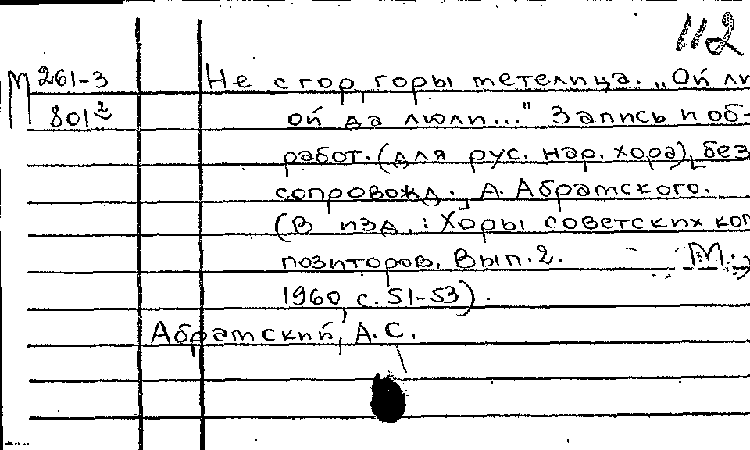 112
М 261-3 Не с гор, горы метелица. „Ой ли
801² ой да люли..." Запись и об-
работ. (для рус. нар. хора), без
сопровожд., А. Абратского.
(В изд.: Хоры советских ком
позиторов. Вып. 2. М.,
1960, с. 51-53).
Абратский, А.С.